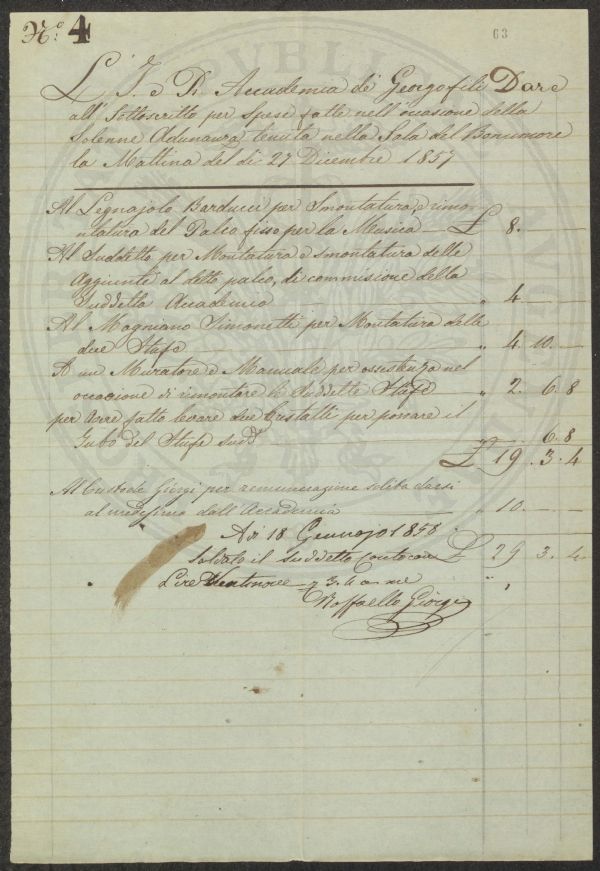 N.° 4
63
L'I. e R. Accademia de' Georgofili Dare
all' Sottoscritto per Spese fatte nell' occasione della
Solenne Adunanza tenuta nella Sala del Buonumore
la Mattina del dì 27 Dicembre 1857
Al Legnajolo Barducci per Smontatura, e rimon-
tatura del Palco fisso per la Musica £ 8. —
Al Suddetto per Montatura e smontatura delle
Aggiunte al detto palco, di commissione della
Suddetta Accademia " 4 —
Al Magniano Simonetti per Montatura delle
due Stufe " 4. 10. —
A un Muratore e Manuale per assistenza nel
occasione di rimontare le Suddette Stufe " 2. 6. 8
per avere fatto levare due Cristalli per passare il
Tubo del Stufe sud.e " 6. 8
£ 19. 3. 4
Al Custode Giorgi per remunerazione solita darsi
al medesimo dall' Accademia " 10. — —
A dì 18 Gennajo 1858
Saldato il suddetto Conto con £ 29 3. 4
Lire Ventinove e 3. 4 a me
Raffaello Giorgi